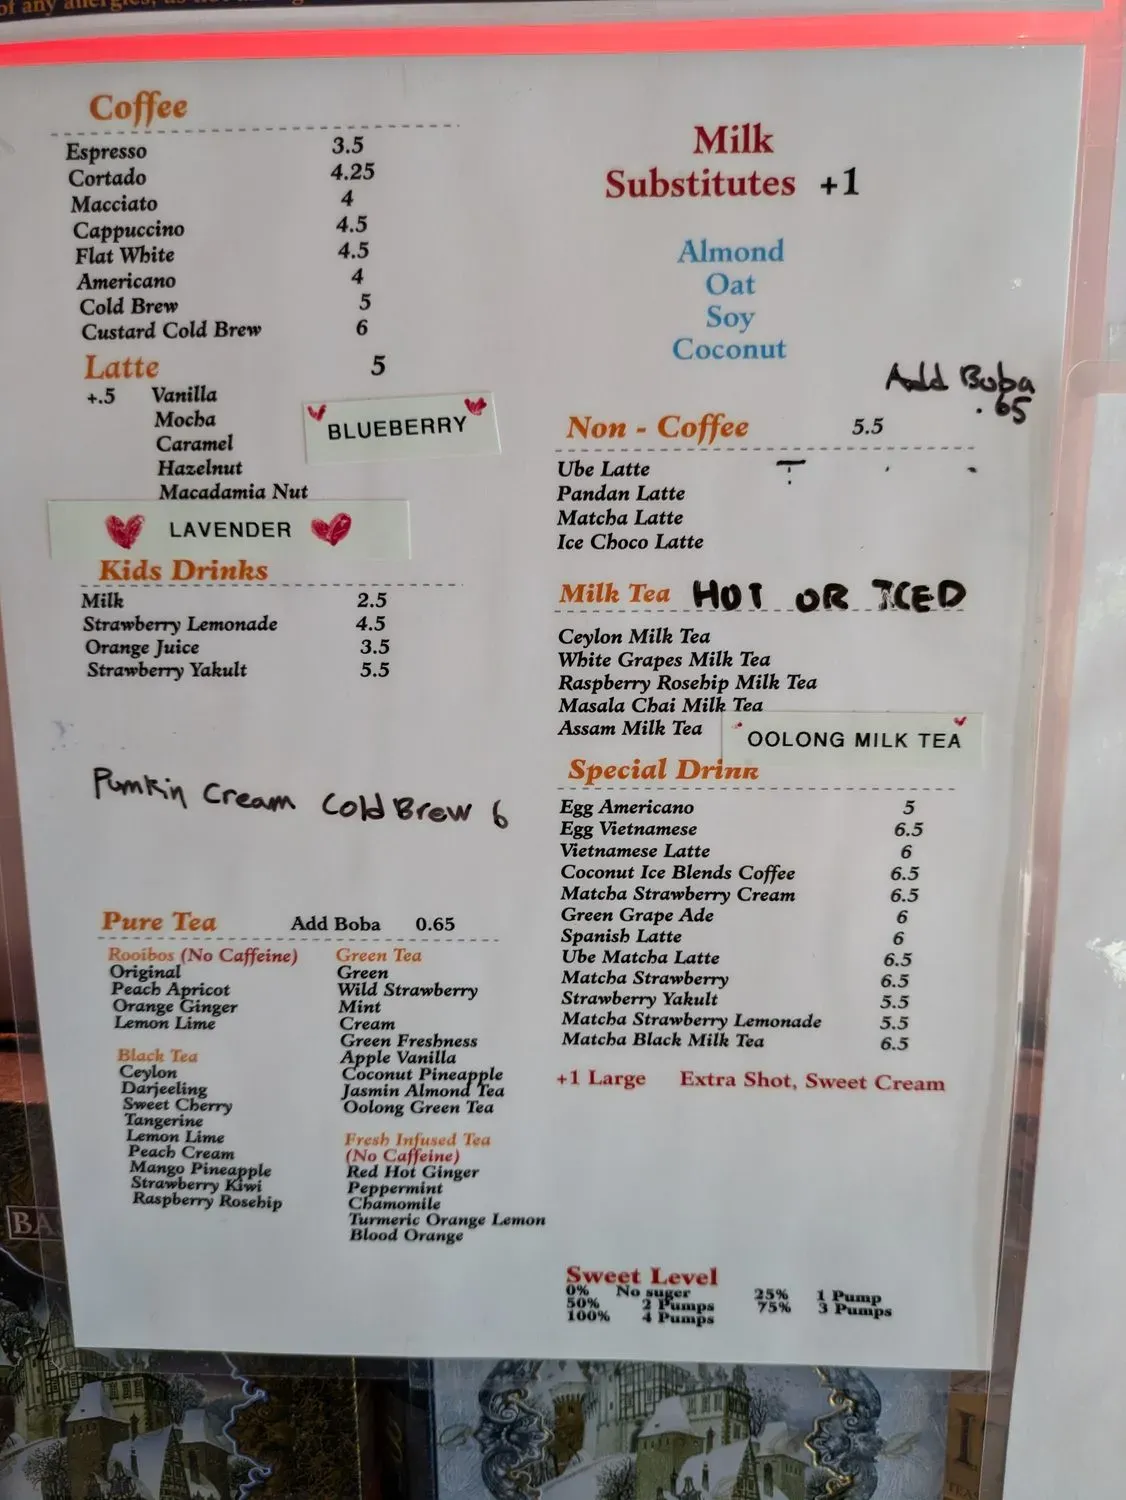 of any allergies, as not all
Coffee
Espresso 3.5
Cortado 4.25
Macciato 4
Cappuccino 4.5
Flat White 4.5
Americano 4
Cold Brew 5
Custard Cold Brew 6
Latte 5
+.5 Vanilla
Mocha
Caramel
Hazelnut
Macadamia Nut
BLUEBERRY
LAVENDER
Kids Drinks
Milk 2.5
Strawberry Lemonade 4.5
Orange Juice 3.5
Strawberry Yakult 5.5
Pumkin Cream Cold Brew 6
Pure Tea Add Boba 0.65
Rooibos (No Caffeine)
Original
Peach Apricot
Orange Ginger
Lemon Lime
Black Tea
Ceylon
Darjeeling
Sweet Cherry
Tangerine
Lemon Lime
Peach Cream
Mango Pineapple
Strawberry Kiwi
Raspberry Rosehip
Green Tea
Green
Wild Strawberry
Mint
Cream
Green Freshness
Apple Vanilla
Coconut Pineapple
Jasmin Almond Tea
Oolong Green Tea
Fresh Infused Tea
(No Caffeine)
Red Hot Ginger
Peppermint
Chamomile
Turmeric Orange Lemon
Blood Orange
Milk
Substitutes +1
Almond
Oat
Soy
Coconut
Add Boba
.65
Non - Coffee 5.5
Ube Latte
Pandan Latte
Matcha Latte
Ice Choco Latte
Milk Tea HOT OR ICED
Ceylon Milk Tea
White Grapes Milk Tea
Raspberry Rosehip Milk Tea
Masala Chai Milk Tea
Assam Milk Tea
OOLONG MILK TEA
Special Drink
Egg Americano 5
Egg Vietnamese 6.5
Vietnamese Latte 6
Coconut Ice Blends Coffee 6.5
Matcha Strawberry Cream 6.5
Green Grape Ade 6
Spanish Latte 6
Ube Matcha Latte 6.5
Matcha Strawberry 6.5
Strawberry Yakult 5.5
Matcha Strawberry Lemonade 5.5
Matcha Black Milk Tea 6.5
+1 Large Extra Shot, Sweet Cream
Sweet Level
0% No suger 25% 1 Pump
50% 2 Pumps 75% 3 Pumps
100% 4 Pumps
BA